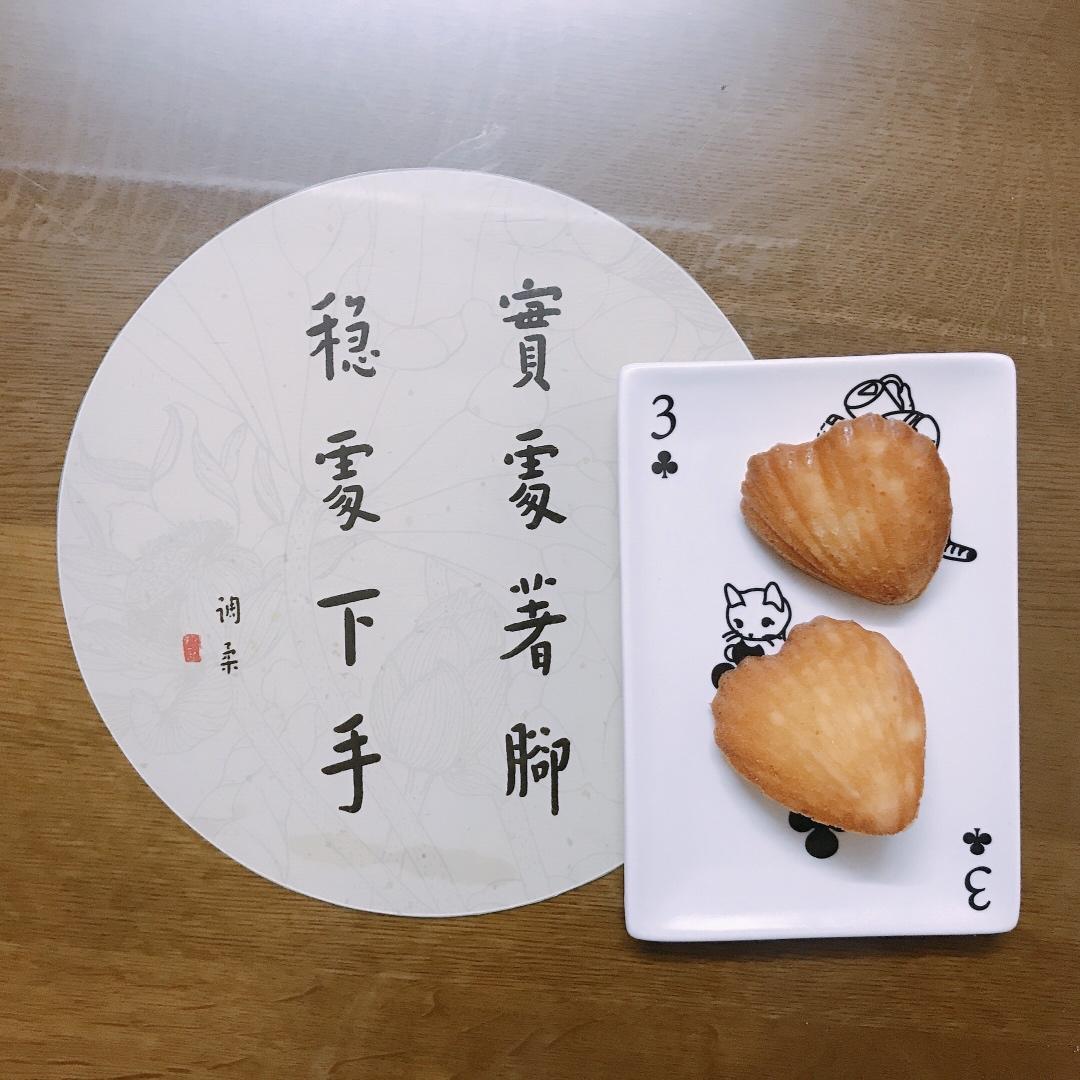 實處著腳
穏處下手
调柔
3
3